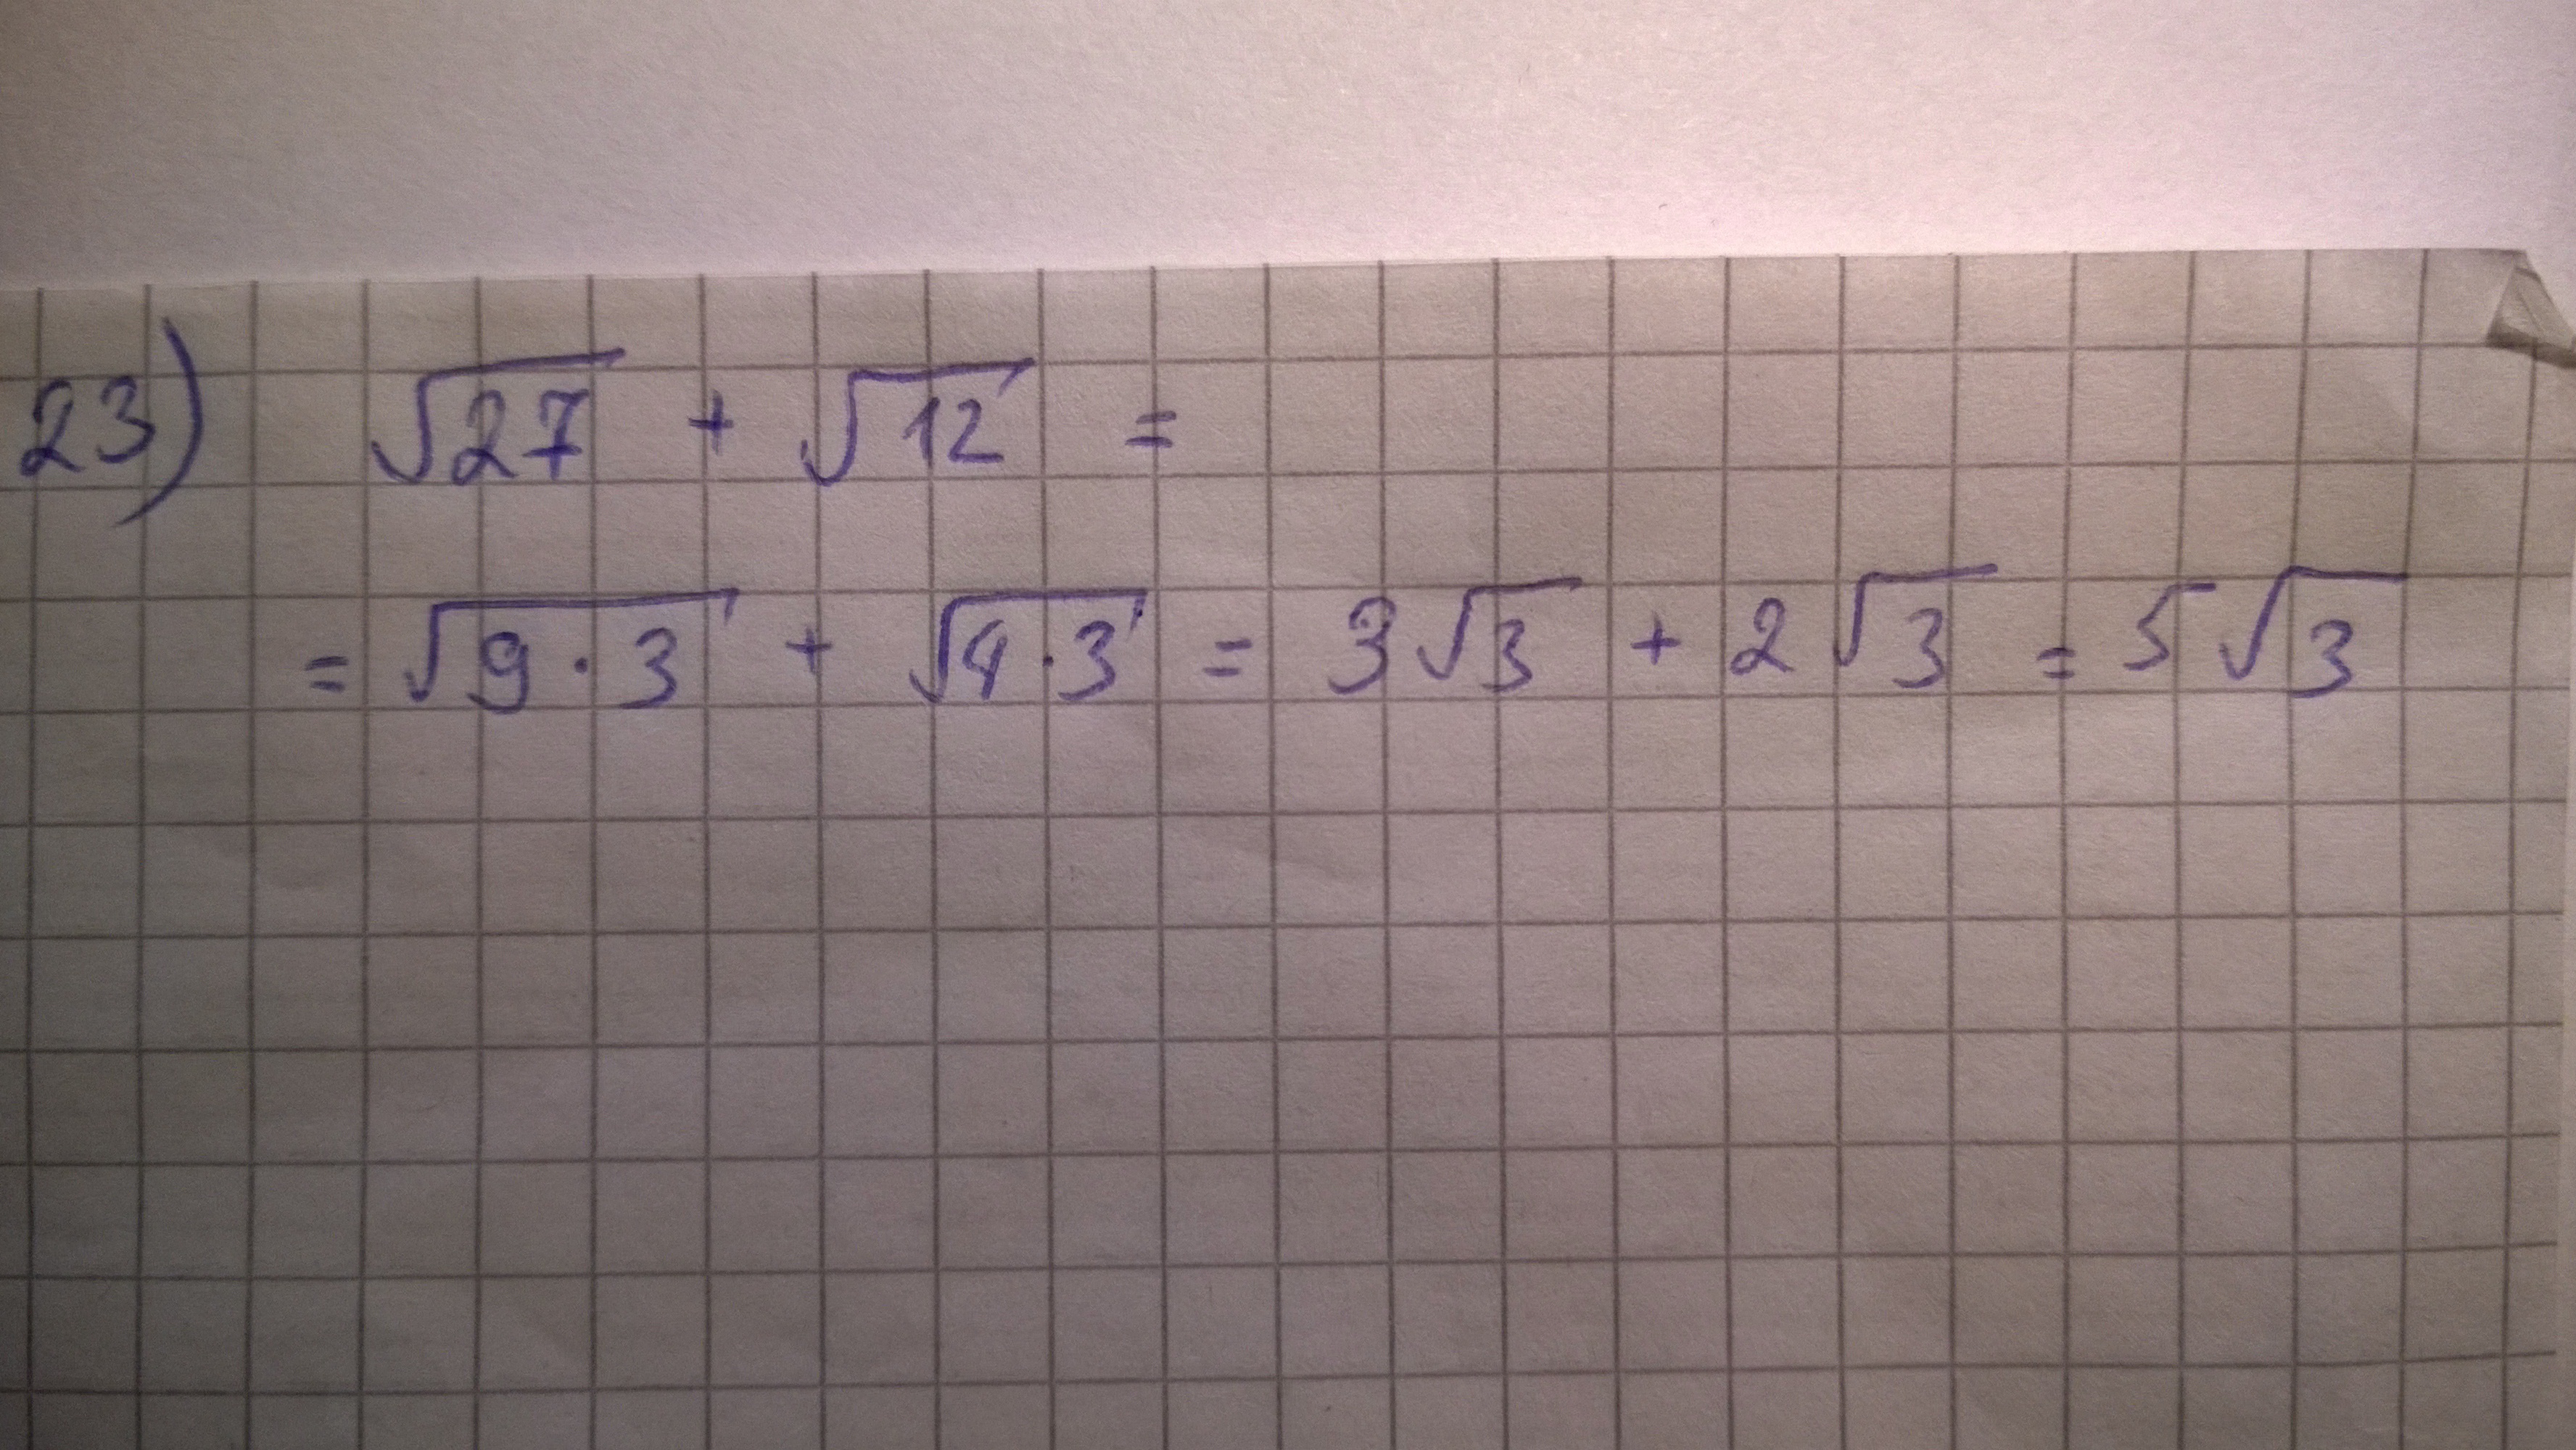 23) √27 + √12 =
= √9·3 + √4·3 = 3√3 + 2√3 = 5√3